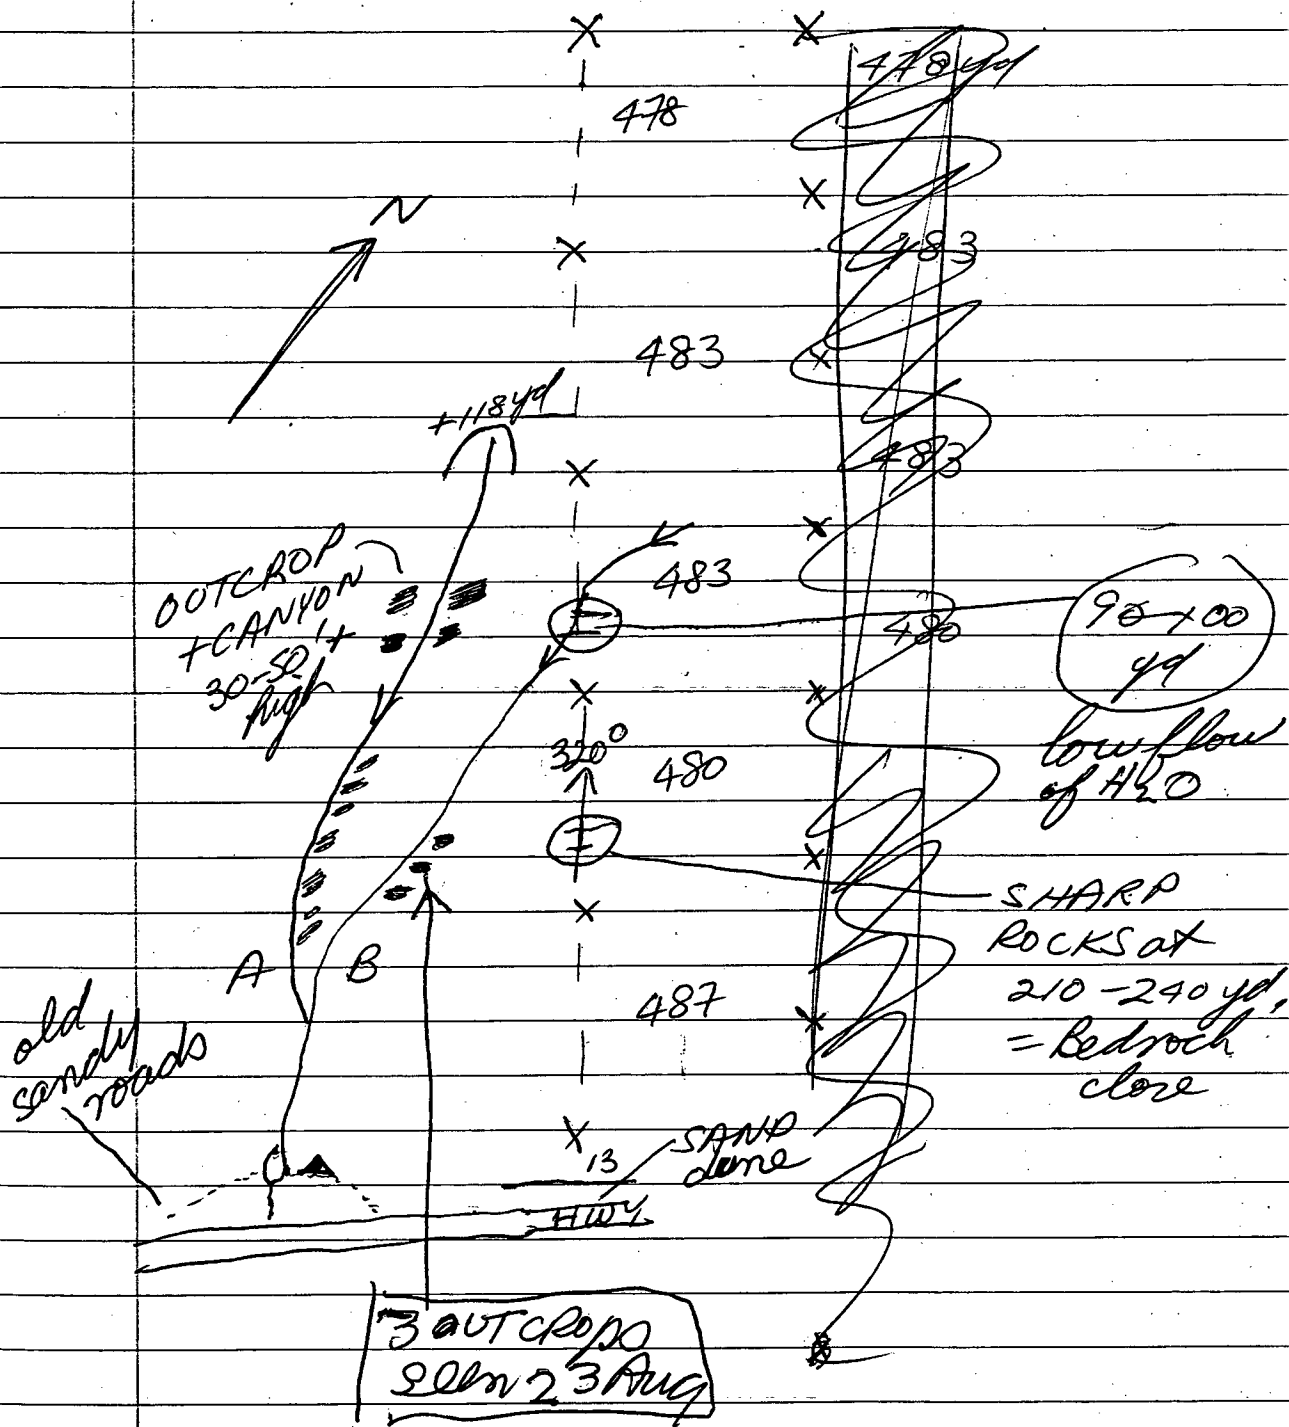 478 yd
478
N
483
483
+118 yd
483
OUTCROP
+CANYON
30-50'+
high
483
480
yd
low flow
of H2O
320°
480
SHARP
ROCKS at
210-240 yd,
= Bedrock
close
A
B
487
old
sandy
roads
SAND
dune
13
HWY
3 OUTCROPS
seen 23 Aug